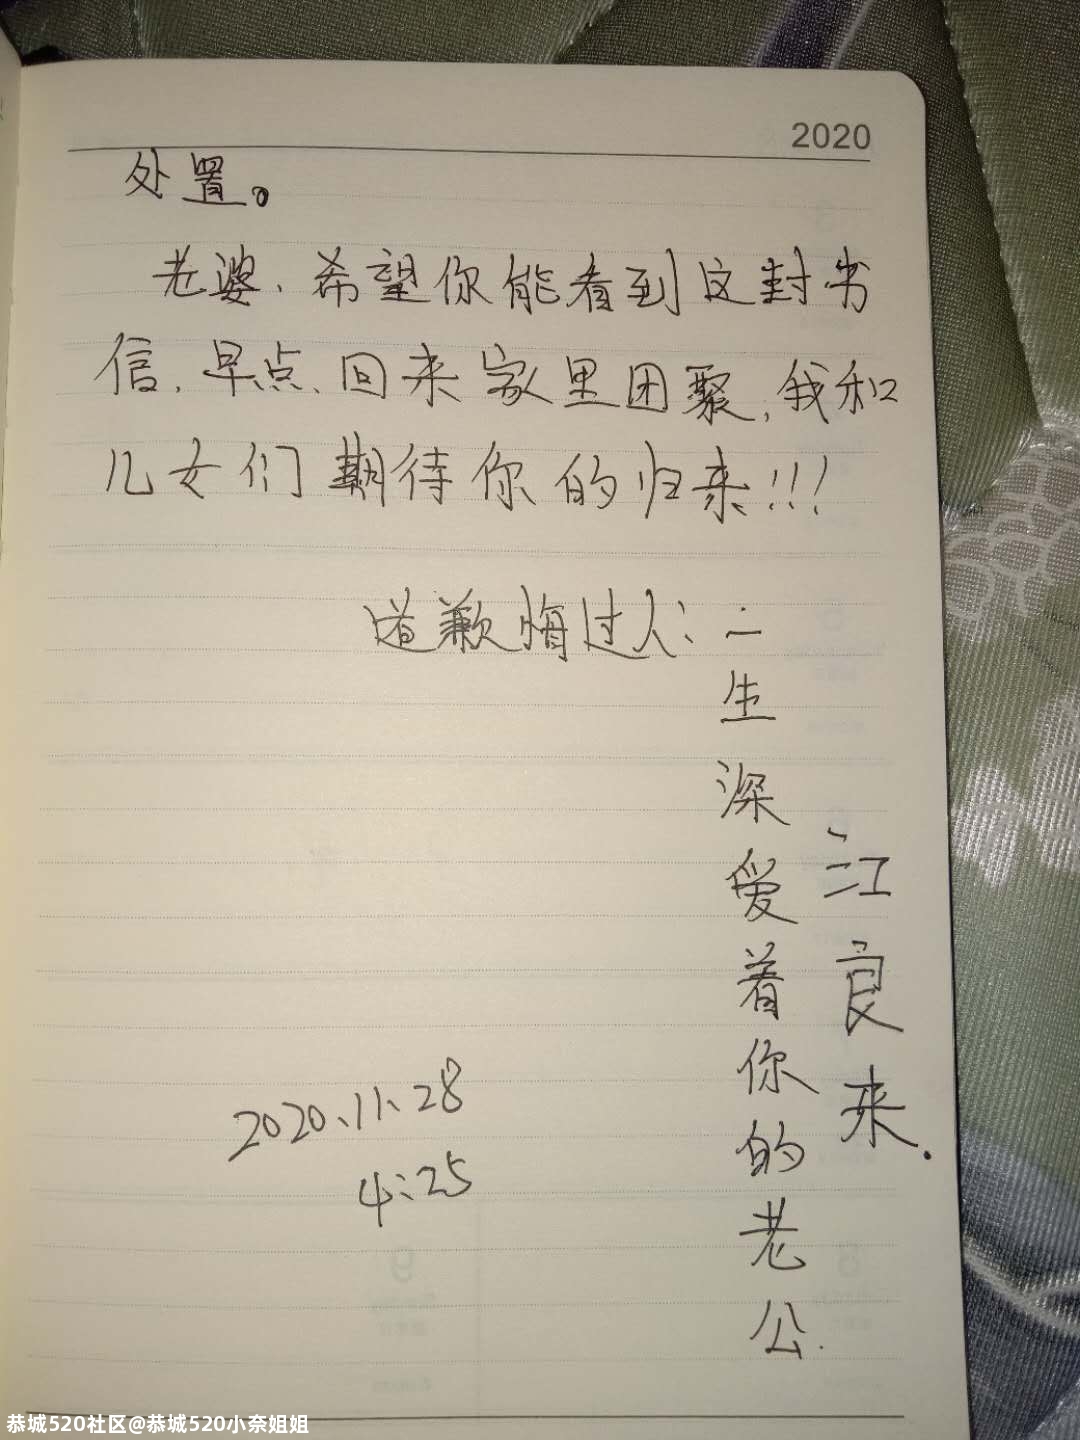 2020
处置。
老婆、希望你能看到这封书
信,早点、回来家里团聚,我和
儿女们期待你的归来!!!
道歉悔过人:二
生深爱着你的老公.
江良来.
2020、11、28
4:25
恭城520社区@恭城520小奈姐姐